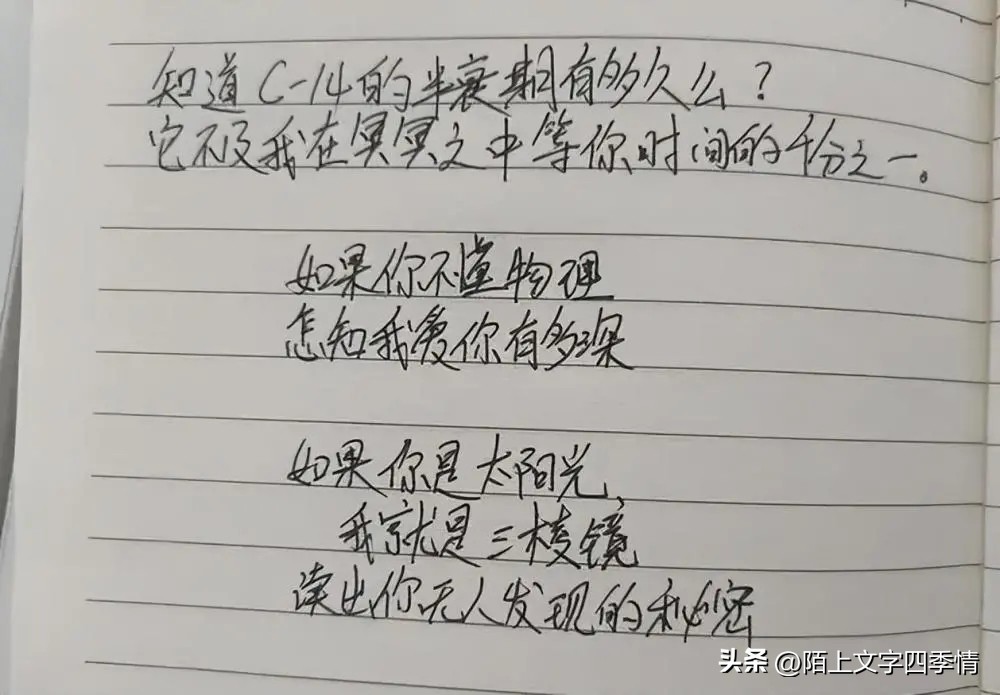 知道C-14的半衰期有多久么？
它不及我在冥冥之中等你时间的千分之一。
如果你不懂物理
怎知我爱你有多深
如果你是太阳光，
我就是三棱镜
读出你无人发现的秘密
头条 @陌上文字四季情